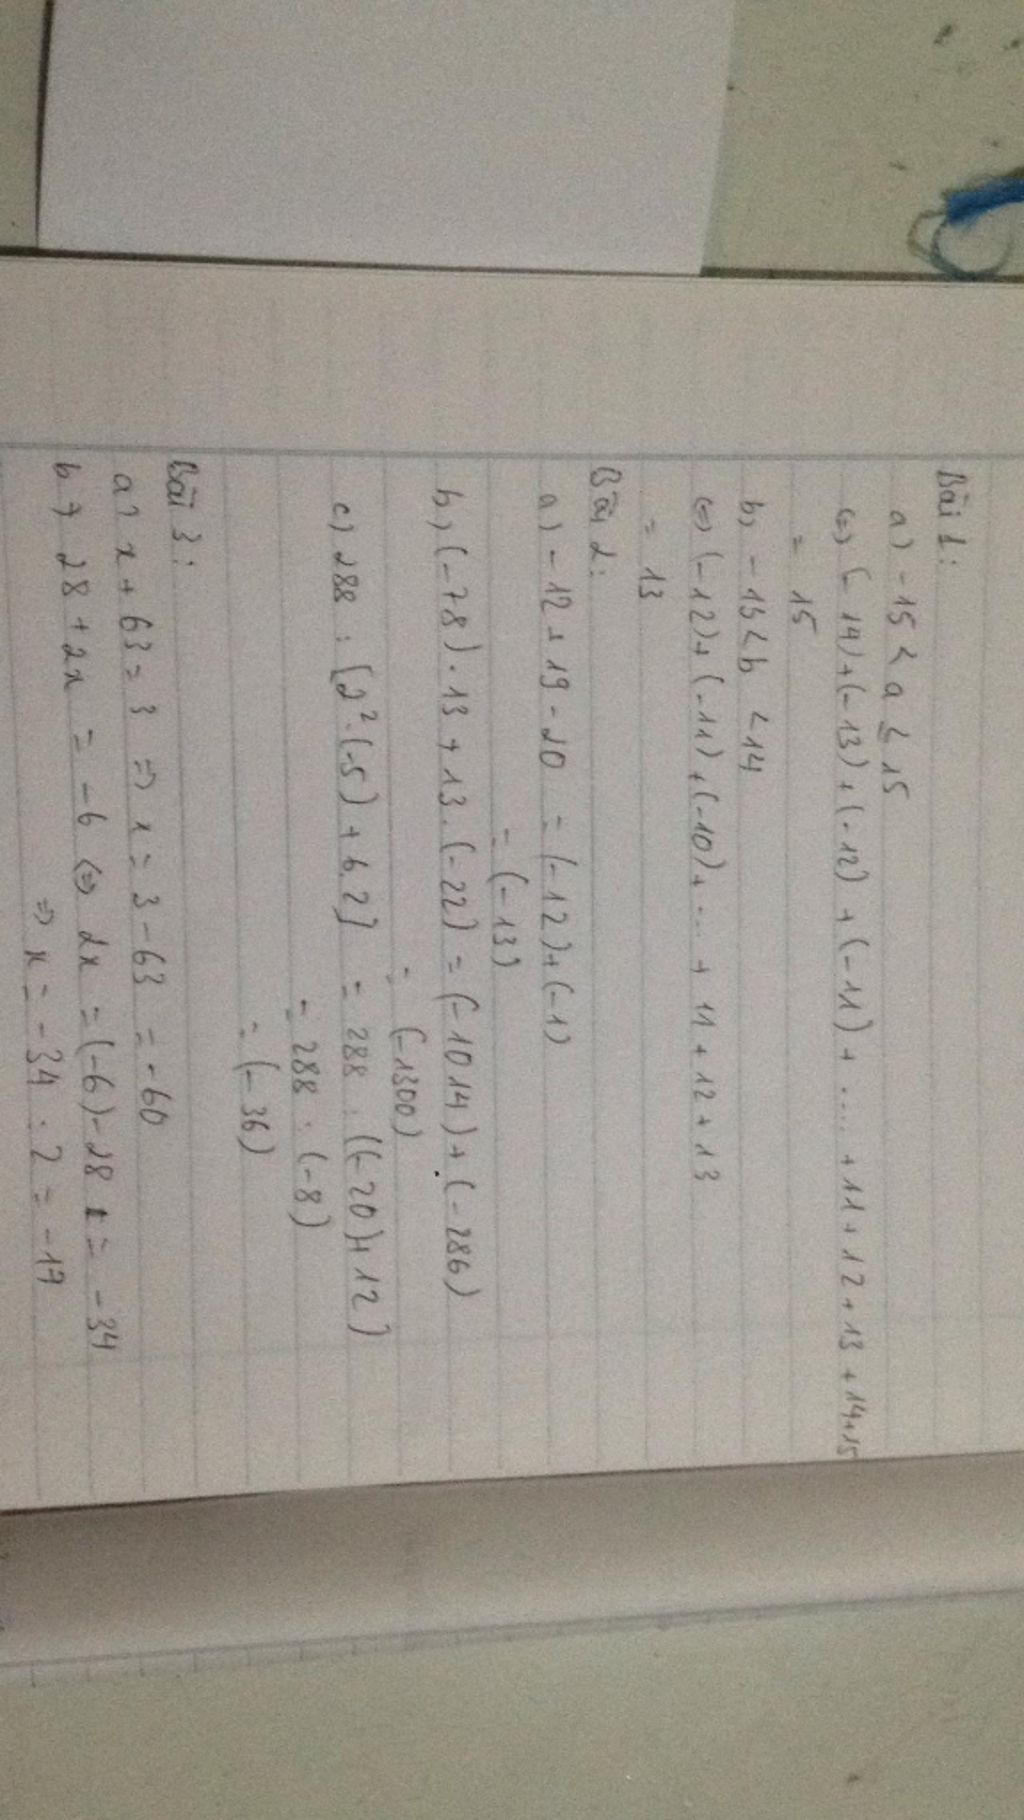 Bài 1:
a) -15 < a ≤ 15
(=) (-14)+(-13)+(-12)+(-11)+....+11+12+13+14+15
= 15
b, -13 < b < 14
(=) (-12)+(-11)+(-10)+...+11+12+13
= 13
Bài 2:
a) -12+19-20 = (-12)+(-1)
= (-13)
b, (-78).13+13.(-22) = (-1014)+(-286)
= (-1300)
c) 288 : [2².(-5)+6.2] = 288 : ((-20)+12)
= 288 : (-8)
= (-36)
Bài 3:
a) x+63=3 => x = 3-63 = -60
b) 28+2x = -6 <=> 2x = (-6)-28 = -34
=> x = -34 : 2 = -17